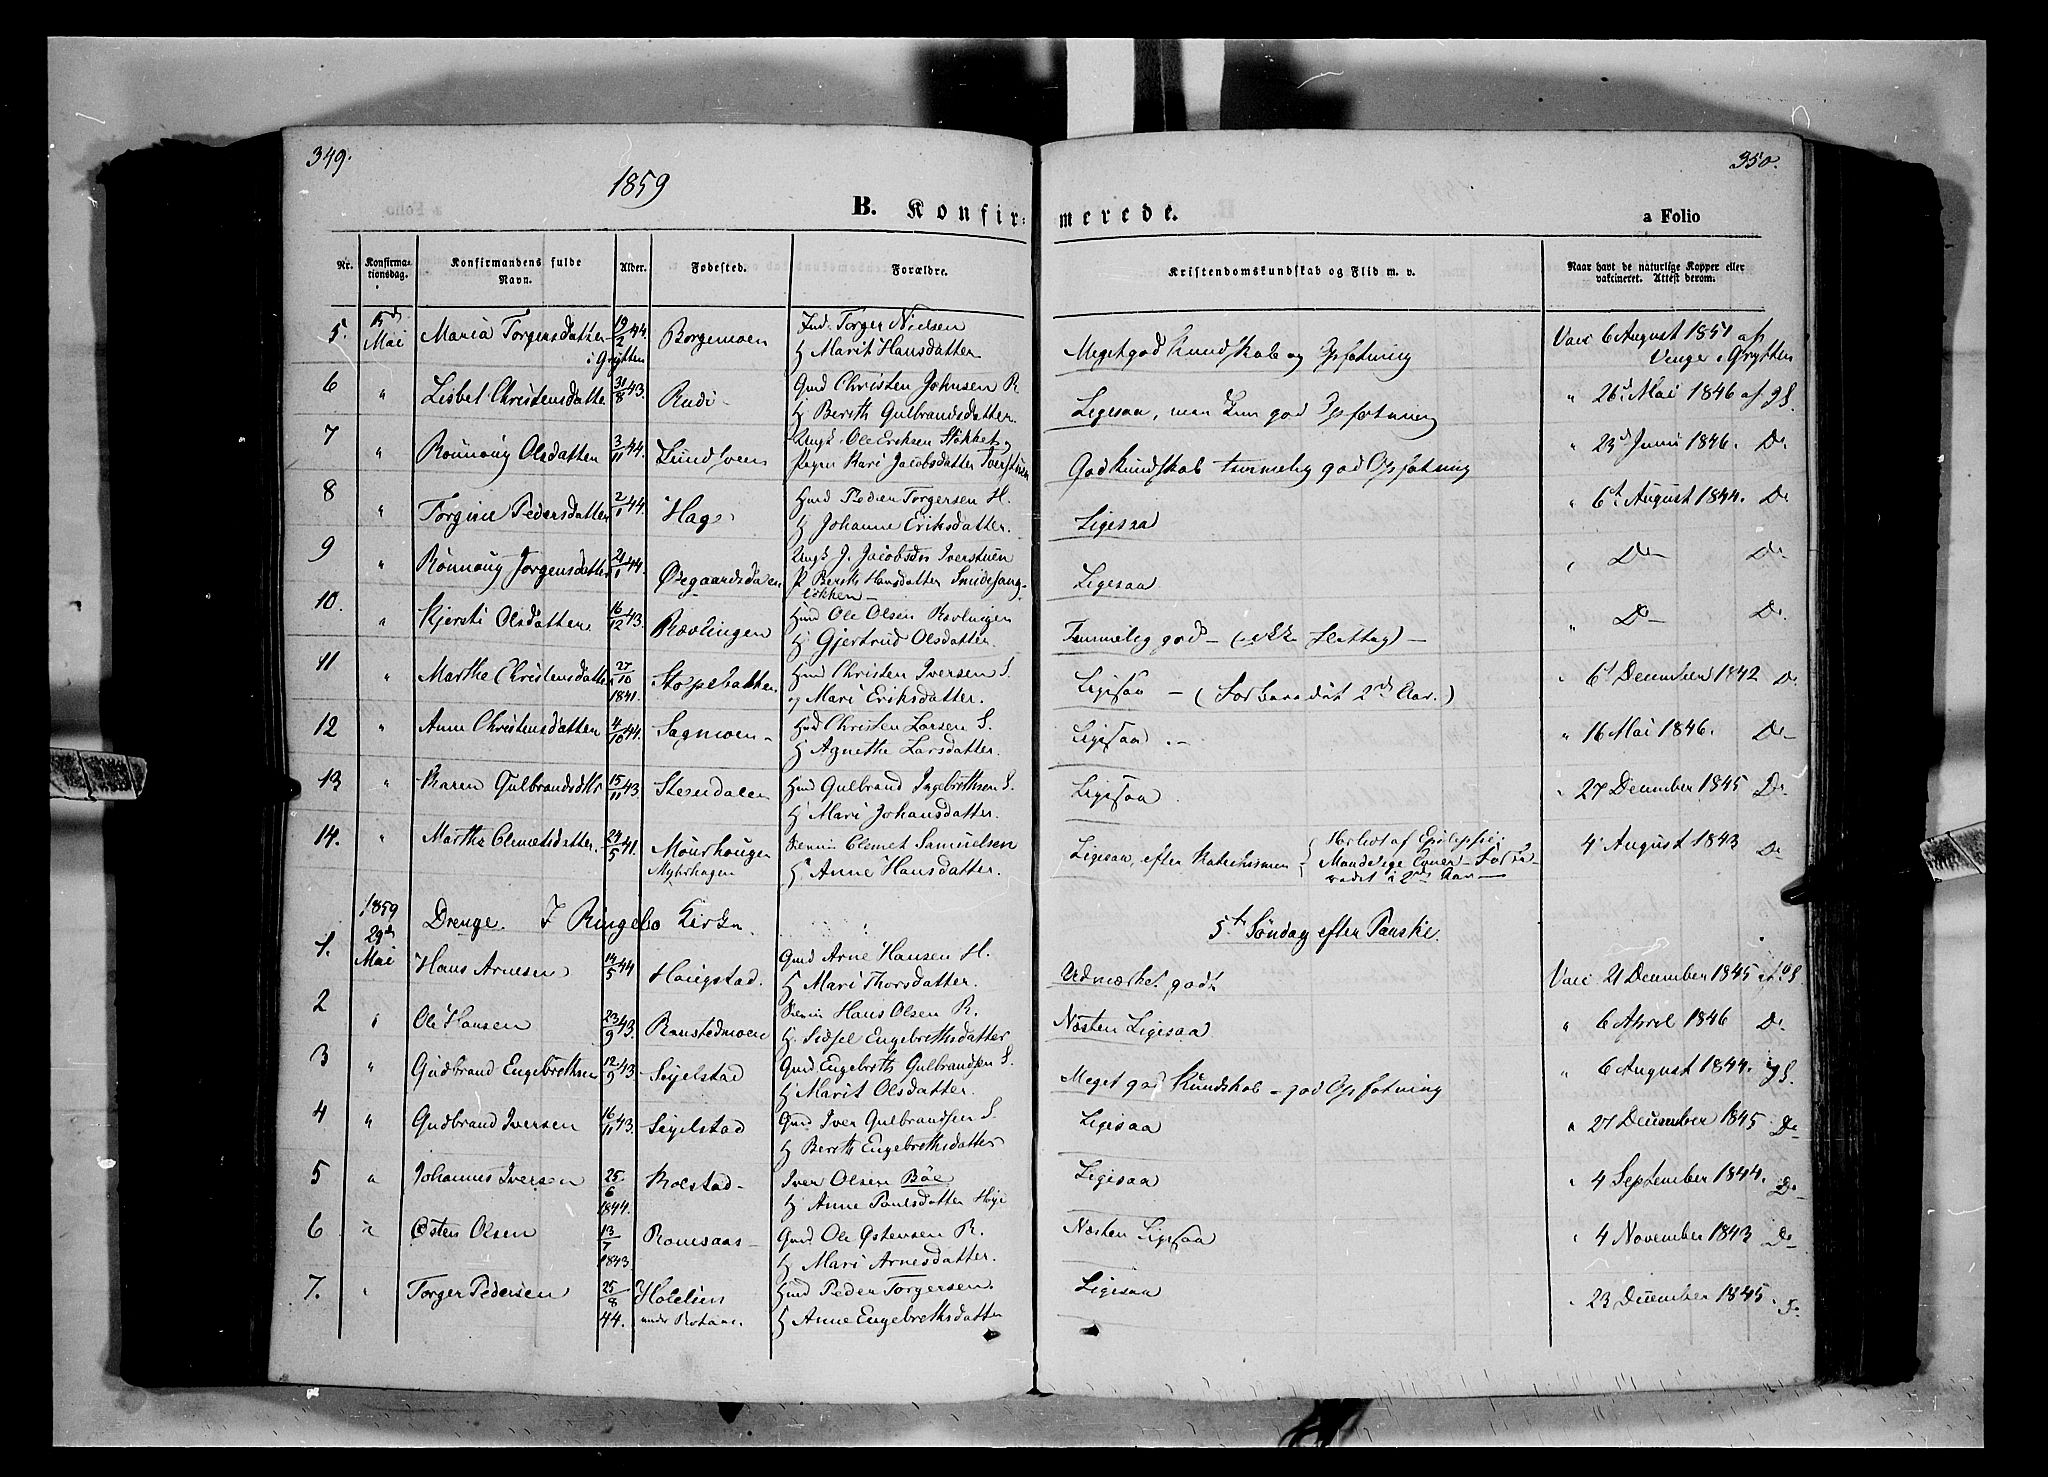 349.
350.
1859
B. Konfirmerede.
a Folio
Nr.
Konfirmationsdag.
Konfirmandens fulde Navn.
Alder.
Fødested.
Forældre.
Kristendomskundskab og Flid m. v.
Naar havt de naturlige Kopper eller vakcineret. Attest derom.
5. Mai Maria Torgersdatter 19/2 44. Borgemoen Ind. Torger Nielsen Meget god Kundskab og Opfatning Vacc 6 August 1851 af
i Grytten Marit Hansdatter Venge i Grytten
6 " Lisbet Christensdatter 31/8 43. Rudi Gmd Christen Johnsen R Ligesaa, men kun god Opfatning " 26d Mai 1846 af gS.
Berith Gulbrandsdatter
7 " Rønnoug Olsdatter 3/11 44. Lundsveen Ungk. Ole Eriksen Stokket og God Kundskab temmelig god Opfatning " 23d Juni 1846. Do
Pigen Kari Jacobsdatter Iverstuen
8 " Torgine Pedersdatter 2/1 44. Hage Hmd Peder Torgersen H. Ligesaa " 6t August 1844. Do
Johanne Eriksdatter.
9 " Rønnoug Jørgensdatter 21/1 44. Øegaardsdalen Ungk J. Jacobsen Iverstuen Ligesaa Do Do
P Berith Hansdatter Smidesang-
løkken
10. " Kjersti Olsdatter 16/12 43. Rævlingen Hmd Ole Olsen Rævlingen Temmelig god (ikke Flittig) " Do Do
Gjertrud Olsdatter.
11 " Marthe Christensdatter 27/10 1841. Støpebakken Hmd Christen Iversen S. Ligesaa (Forberedet 2det Aar.) 6t December 1842 Do
og Mari Eriksdatter.
12 " Anne Christensdatter 4/10 44. Sagmoen Hmd Christen Larsen S. Ligesaa " 16 Mai 1846. Do
Agnethe Larsdatter.
13 " Karen Gulbrandsdtr 15/11 43. Stensdalen Hmd Gulbrand Ingebrethsen S. Ligesaa 27 December 1845 Do
Mari Johansdatter.
14. " Marthe Clemetsdatter. 24/5 41. Mourhougen Clemet Samuelsen Ligesaa, efter Katekismen 4 August 1843 Do
Myhrhagen Anne Hansdatter. i 2det Aar
1859 Drenge. I Ringebo Kirke 5te Søndag efter Paaske.
1. 29de Mai Hans Arnesen 14/5 44 Hougstad. Gmd Arne Hansen H. Udmærket godt Vacc 21 December 1845 af gS.
Mari Thorsdatter.
2 Ole Hansen 23/9 43. Ranstadmoen Hans Olsen R. Næsten Ligesaa " 6 April 1846 Do
Sidsel Engebrethsdatter
3 " Gudbrand Engebrethsen 12/9 43. Sygelstad Gmd Engebreth Gulbrandsen S. Meget god Kundskab - god Opfatning " 6 August 1844. gS.
Marit Olsdatter.
4 " Gudbrand Iversen 16/11 43. Sygelstad Gmd Iver Gulbrandsen S. Ligesaa " 27 December 1845. Do
Berith Engebrethsdatter
5 " Johannes Iversen 25/6 1844. Kolstad Iver Olsen Bøe Ligesaa 4 September 1844. Do
Anne Paulsdatter Høje
6 " Østen Olsen 13/7 1843 Romsaas Gmd Ole Østensen R. Næsten Ligesaa 4 November 1843 Do
Mari Arnesdatter.
7. Torger Pedersen 25/8 44. Holelien Hmd Peder Torgersen. Ligesaa 23 December 1845. Do
under Anne Engebrethsdatter